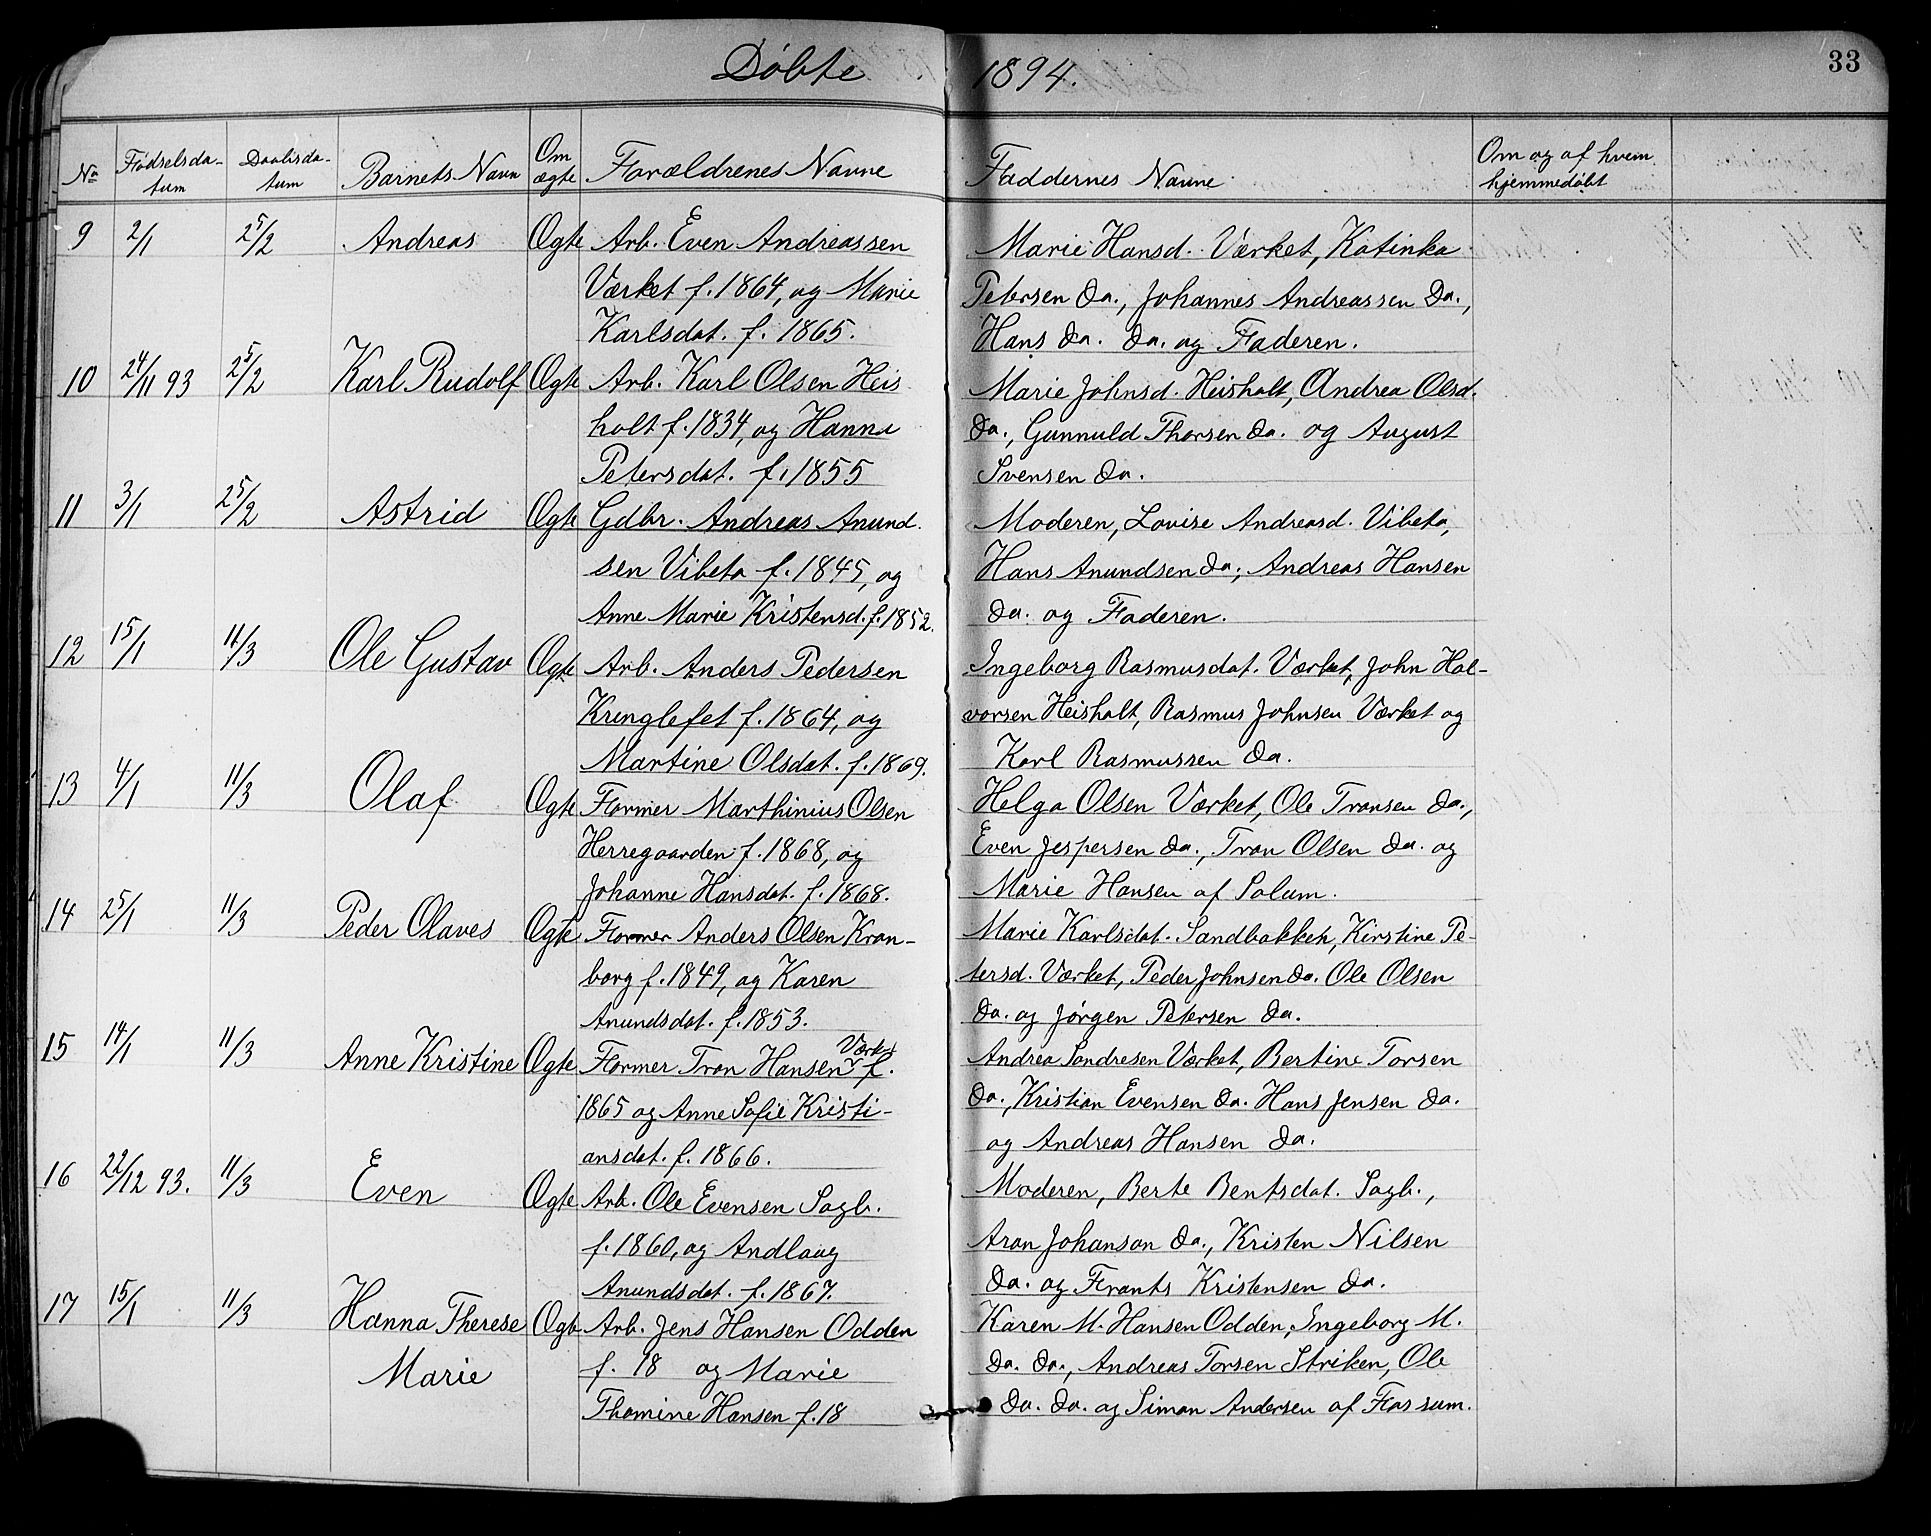 Døbte 1894. 33
No Fødselsda- Daabsda- Barnets Navn Om Forældrenes Navne Faddernes Navne Om og af hvem
tum tum ægte hjemmedøbt
9 2/1 25/2 Andreas Ægte Arb. Even Andreassen Marie Hansd. Værket, Katinka
Værket f. 1864, og Marie Petersen do., Johannes Andreassen Do.,
Karlsdat. f. 1865. Hans do. do. og Faderen.
10 24/11 93 25/2 Karl Rudolf Ægte Arb. Karl Olsen Heis Marie Johnsd. Heisholt, Andrea Olsd.
holt f. 1834, og Hanna do., Gunnuld Thorsen do. og August
Petersdat. f. 1855 Svensen do.
11 3/1 25/2 Astrid Ægte Gdbr. Andreas Anund. Moderen, Lovise Andreasd. Vibeto,
sen Vibeto f. 1845, og Hans Anundsen do., Andreas Hansen
Anne Marie Kristensd. f. 1852. do. og Faderen.
12 15/1 11/3 Ole Gustav Ægte Arb. Anders Pedersen Ingeborg Rasmusdat. Værket, John Hal-
Kringlefet f. 1864, og vorsen Heisholt, Rasmus Johnsen Værket og
Martine Olsdat. f. 1869. Karl Rasmussen do.
13 4/1 11/3 Olaf Ægte Former Marthinius Olsen Helga Olsen Værket, Ole Tronsen do.,
Herregaarden f. 1868, og Even Jespersen do., Tron Olsen do. og
Johanne Hansdat. f. 1868. Marie Hansen af Solum.
14 25/1 11/3 Peder Olaves Ægte Former Anders Olsen Kron- Marie Karlsdat. Sandbakken, Kirstine Pe-
borg f. 1849, og Karen tersd. Værket, Peder Johnsen do. Ole Olsen
Anundsdat. f. 1853. do. og Jørgen Petersen do.
15 14/1 11/3 Anne Kristine Ægte Former Tron Hansen Værket f. Andrea Sondresen Værket, Bertine Torsen
1865 og Anne Sofie Kristi- do., Kristian Evensen do. Hans Jensen do.
ansdat. f. 1866. og Andreas Hansen do.
16 22/12 93. 11/3 Even Ægte Arb. Ole Evensen Sagb. Moderen, Berte Bentsdat. Sagb.,
f. 1860, og Andlaug Aron Johanson do., Kristen Nilsen
Anundsdat. f. 1867. do. og Frants Kristensen do.
17 15/1 11/3 Hanna Therese Ægte Arb. Jens Hansen Odden Karen M. Hansen Odden, Ingeborg M.
Marie f. 18 og Marie do. do., Andreas Torsen Striken, Ole
Thomine Hansen f. 18 do. do. og Simon Andersen af Fossum.